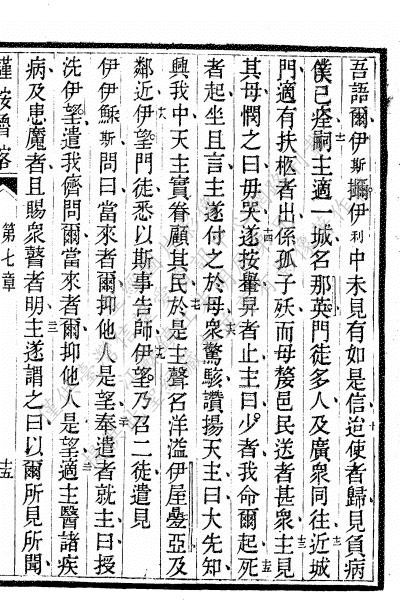 吾語爾伊斯擳伊利中未見有如是信迨使者歸見負病
僕已痊嗣主適一城名那英門徒多人及廣衆同往近城
門適有扶柩者出係孤子殀而母嫠邑民送者甚衆主見
其母憫之曰毋哭遂按轝舁者止主曰少者我命爾起死
者起坐且言主遂付之於母衆驚駭讚揚天主曰大先知
興我中天主實眷顧其民於是主聲名洋溢伊屋疊亞及
鄰近伊望門徒悉以斯事告師伊望乃召二徒遣見
伊伊穌斯問曰當來者爾抑他人是望奉遣者就主曰授
洗伊望遣我儕問爾當來者爾抑他人是望適主醫諸疾
病及患魔者且賜衆瞽者明主遂謂之曰以爾所見所聞
第七章